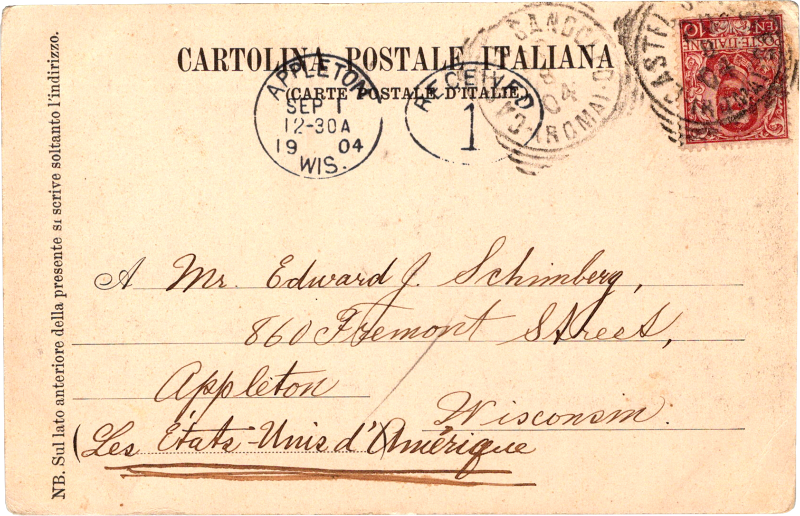 CARTOLINA POSTALE ITALIANA
(CARTE POSTALE D'ITALIE)
APPLETON,
SEP 1
12-30A
19 04
WIS.
RECEIVED
1
CASTEL GANDOLFO
04
(ROMA)
CASTEL
04
(ROMA)
POSTE ITALIANE
10
NB. Sul lato anteriore della presente si scrive soltanto l'indirizzo.
A Mr. Edward J. Schimberg,
860 Fremont Street,
Appleton
Wisconsin.
(Les États-Unis d'Amérique